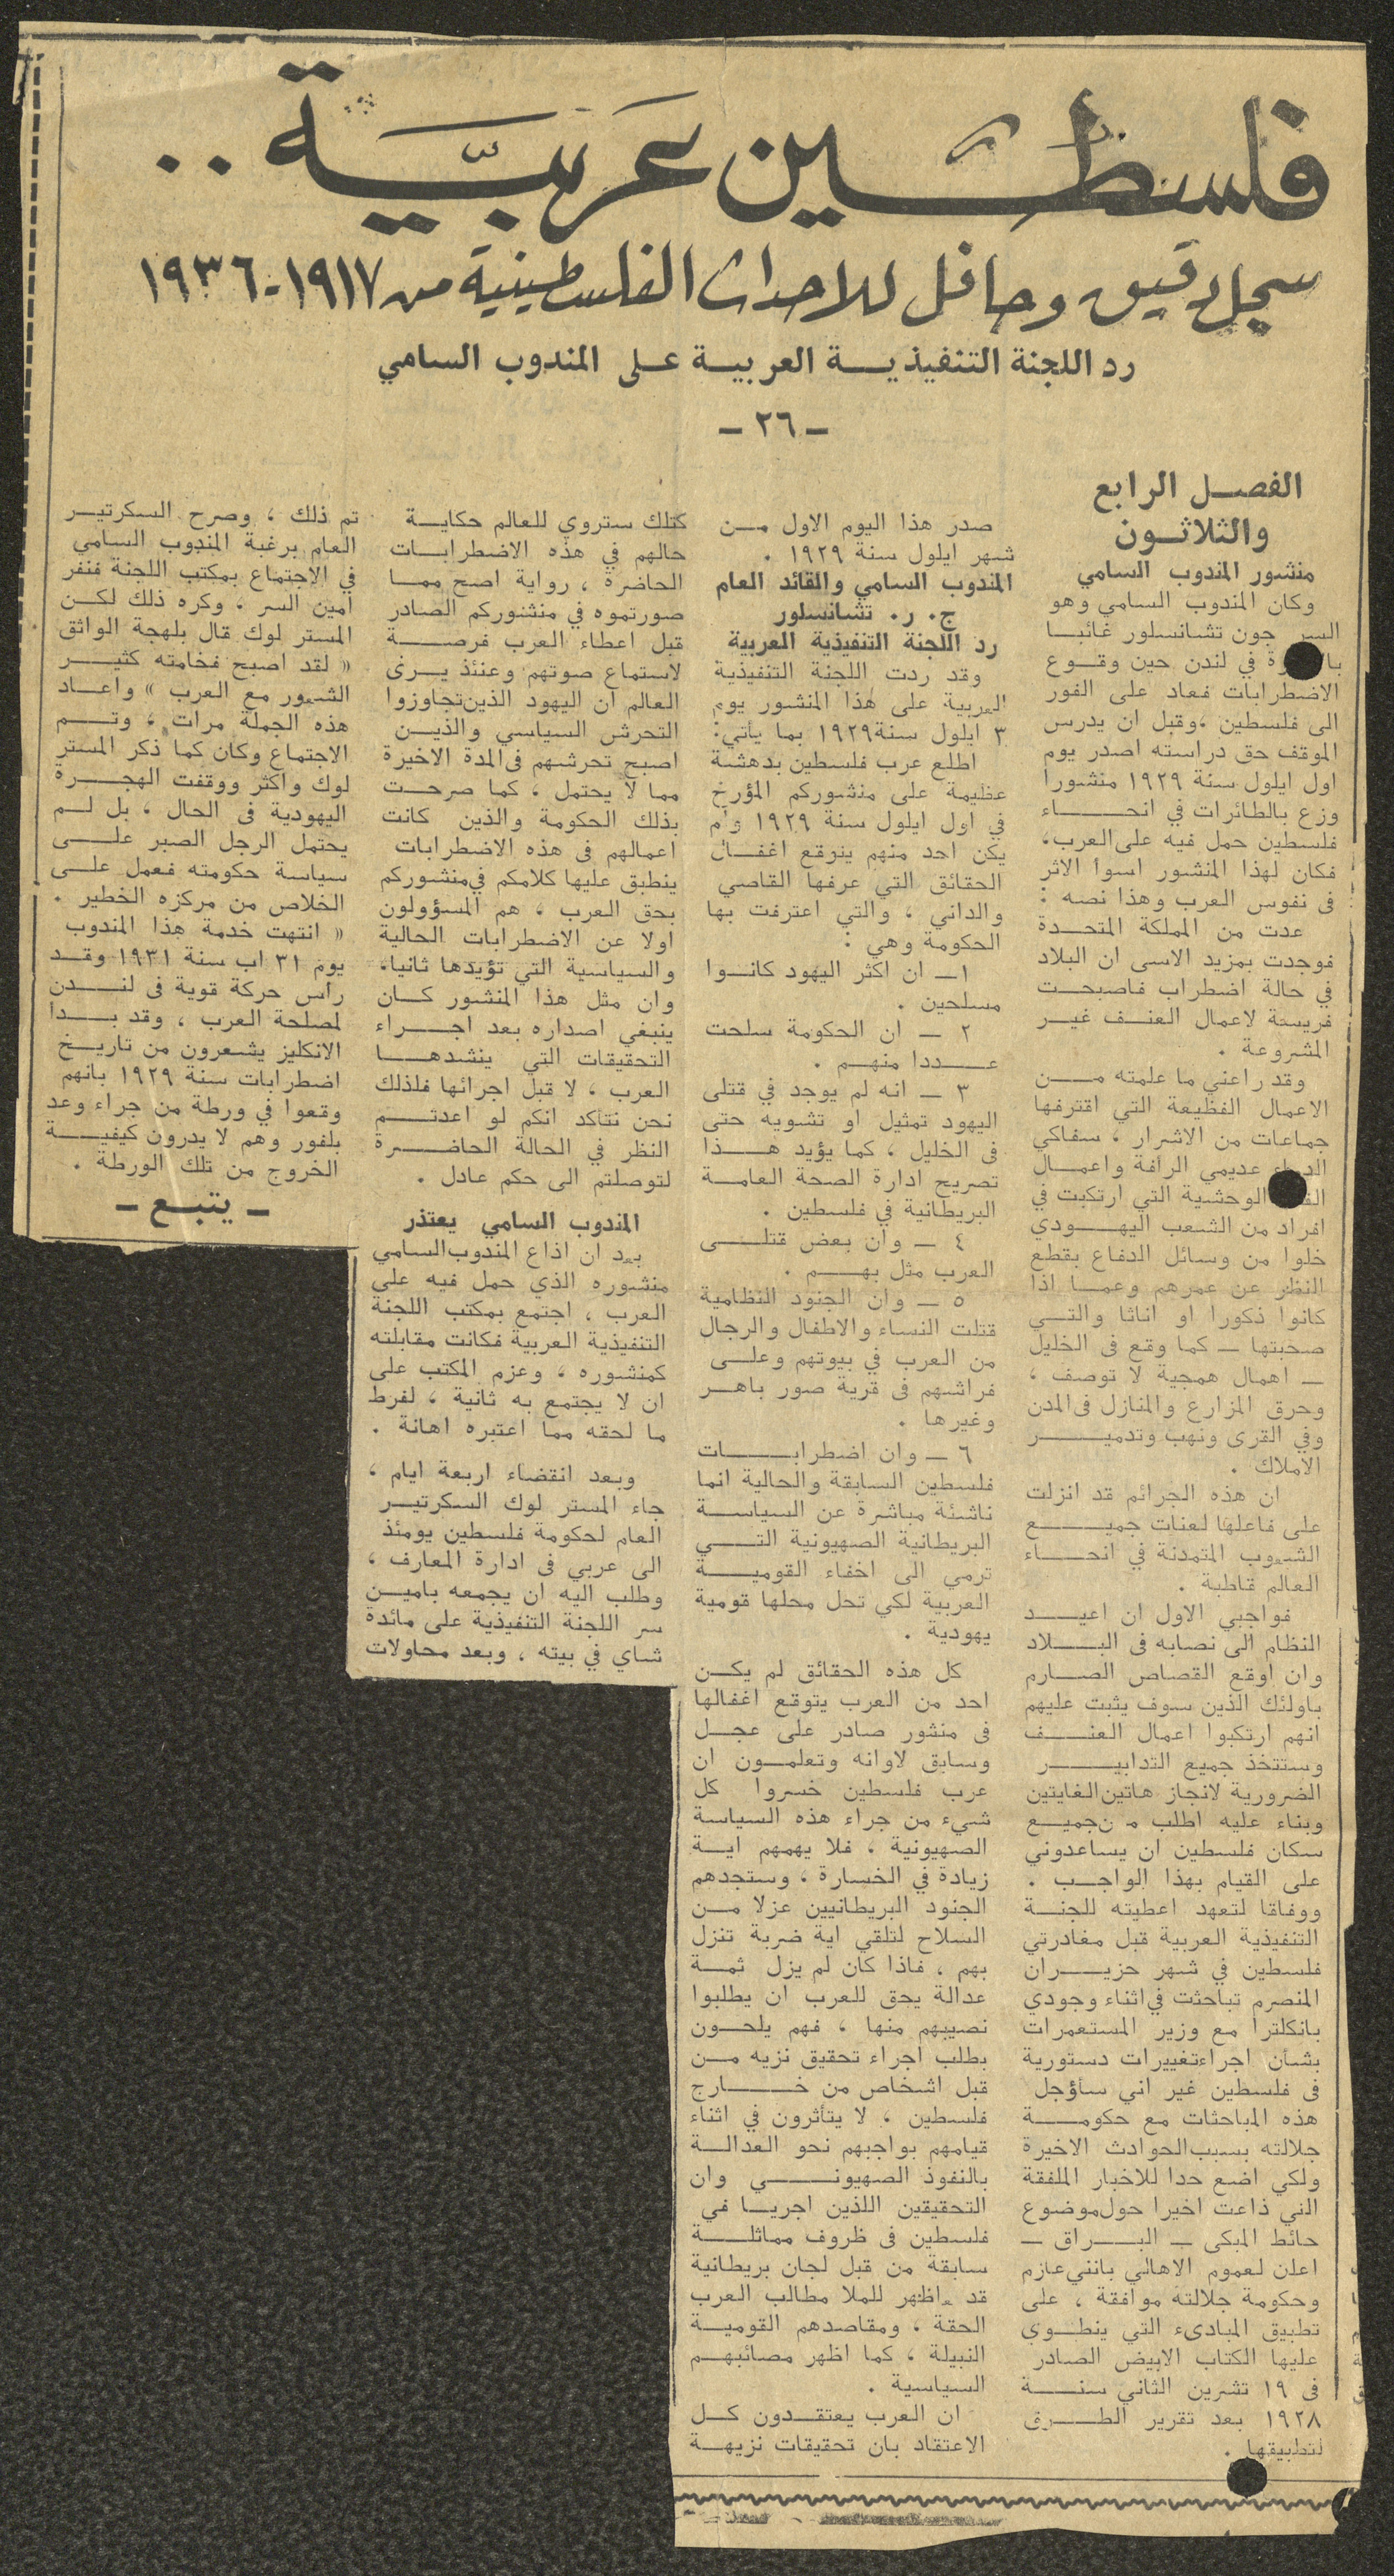 فلسطين عربية ..
سجل دقيق وحافل للاحداث الفلسطينية من ١٩١٧-١٩٣٦
رد اللجنة التنفيذية العربية على المندوب السامي
- ٢٦ -
الفصل الرابع
والثلاثون
منشور المندوب السامي
وكان المندوب السامي وهو
السر جون تشانسلور غائبا
في لندن حين وقوع
الاضطرابات فعاد على الفور
الى فلسطين ،وقبل ان يدرس
الموقف حق دراسته اصدر يوم
اول ايلول سنة ١٩٢٩ منشورا
وزع بالطائرات في انحاء
فلسطين حمل فيه على العرب،
فكان لهذا المنشور اسوأ الاثر
فى نفوس العرب وهذا نصه :
عدت من المملكة المتحدة
فوجدت بمزيد الاسى ان البلاد
في حالة اضطراب فاصبحت
فريسة لاعمال العنف غير
المشروعة .
وقد راعني ما علمته من
الاعمال الفظيعة التي اقترفها
جماعات من الاشرار ، سفاكي
الدماء عديمي الرأفة واعمال
الوحشية التي ارتكبت في
افراد من الشعب اليهودي
خلوا من وسائل الدفاع بقطع
النظر عن عمرهم وعما اذا
كانوا ذكورا او اناثا والتي
صحبتها - كما وقع فى الخليل
- اهمال همجية لا توصف ،
وحرق المزارع والمنازل فى المدن
وفي القرى ونهب وتدمير
الاملاك .
ان هذه الجرائم قد انزلت
على فاعلها لعنات جميع
الشعوب المتمدنة في انحاء
العالم قاطبة .
فواجبي الاول ان اعيد
النظام الى نصابه فى البلاد
وان اوقع القصاص الصارم
باولئك الذين سوف يثبت عليهم
انهم ارتكبوا اعمال العنف
وستتخذ جميع التدابير
الضرورية لانجاز هاتين الغايتين
وبناء عليه اطلب م نجميع
سكان فلسطين ان يساعدوني
على القيام بهذا الواجب .
ووفاقا لتعهد اعطيته للجنة
التنفيذية العربية قبل مغادرتي
فلسطين في شهر حزيران
المنصرم تباحثت في اثناء وجودي
بانكلترا مع وزير المستعمرات
بشأن اجراءتغييرات دستورية
فى فلسطين غير اني سأؤجل
هذه المباحثات مع حكومة
جلالته بسبب الحوادث الاخيرة
ولكي اضع حدا للاخبار الملفقة
التي ذاعت اخيرا حول موضوع
حائط المبكى - البراق -
اعلن لعموم الاهالي بانني عازم
وحكومة جلالته موافقة ، على
تطبيق المبادىء التي ينطوى
عليها الكتاب الابيض الصادر
فى ١٩ تشرين الثاني سنة
١٩٢٨ بعد تقرير الطرق
لتطبيقها .
صدر هذا اليوم الاول من
شهر ايلول سنة ١٩٢٩ .
المندوب السامي والقائد العام
ج. ر. تشانسلور
رد اللجنة التنفيذية العربية
وقد ردت اللجنة التنفيذية
العربية على هذا المنشور يوم
٣ ايلول سنة١٩٢٩ بما يأتي:
اطلع عرب فلسطين بدهشة
عظيمة على منشوركم المؤرخ
في اول ايلول سنة ١٩٢٩ ولم
يكن احد منهم يتوقع اغفال
الحقائق التي عرفها القاصي
والداني ، والتي اعترفت بها
الحكومة وهي :
١- ان اكثر اليهود كانوا
مسلحين .
٢ - ان الحكومة سلحت
عددا منهم .
٣ - انه لم يوجد في قتلى
اليهود تمثيل او تشويه حتى
فى الخليل ، كما يؤيد هذا
تصريح ادارة الصحة العامة
البريطانية في فلسطين .
٤ - وان بعض قتلى
العرب مثل بهم .
٥ - وان الجنود النظامية
قتلت النساء والاطفال والرجال
من العرب في بيوتهم وعلى
فراشهم فى قرية صور باهر
وغيرها .
٦ - وان اضطرابات
فلسطين السابقة والحالية انما
ناشئة مباشرة عن السياسة
البريطانية الصهيونية التي
ترمي الى اخفاء القومية
العربية لكي تحل محلها قومية
يهودية .
كل هذه الحقائق لم يكن
احد من العرب يتوقع اغفالها
فى منشور صادر على عجل
وسابق لاوانه وتعلمون ان
عرب فلسطين خسروا كل
شيء من جراء هذه السياسة
الصهيونية ، فلا يهمهم اية
زيادة في الخسارة ، وستجدهم
الجنود البريطانيين عزلا من
السلاح لتلقي اية ضربة تنزل
بهم ، فاذا كان لم يزل ثمة
عدالة يحق للعرب ان يطلبوا
نصيبهم منها ، فهم يلحون
بطلب اجراء تحقيق نزيه من
قبل اشخاص من خارج
فلسطين ، لا يتأثرون في اثناء
قيامهم بواجبهم نحو العدالة
بالنفوذ الصهيوني وان
التحقيقين اللذين اجريا في
فلسطين فى ظروف مماثلة
سابقة من قبل لجان بريطانية
قد اظهر للملا مطالب العرب
الحقة ، ومقاصدهم القومية
النبيلة ، كما اظهر مصائبهم
السياسية .
ان العرب يعتقدون كل
الاعتقاد بان تحقيقات نزيهة
كتلك ستروي للعالم حكاية
حالهم في هذه الاضطرابات
الحاضرة ، رواية اصح مما
صورتموه في منشوركم الصادر
قبل اعطاء العرب فرصة
لاستماع صوتهم وعنئذ يرى
العالم ان اليهود الذين تجاوزوا
التحرش السياسي والذين
اصبح تحرشهم فى المدة الاخيرة
مما لا يحتمل ، كما صرحت
بذلك الحكومة والذين كانت
اعمالهم فى هذه الاضطرابات
ينطبق عليها كلامكم في منشوركم
بحق العرب ، هم المسؤولون
اولا عن الاضطرابات الحالية
والسياسية التي تؤيدها ثانيا.
وان مثل هذا المنشور كان
ينبغي اصداره بعد اجراء
التحقيقات التي ينشدها
العرب ، لا قبل اجرائها فلذلك
نحن نتأكد انكم لو اعدتم
النظر في الحالة الحاضرة
لتوصلتم الى حكم عادل .
المندوب السامي يعتذر
بعد ان اذاع المندوب السامي
منشوره الذي حمل فيه على
العرب ، اجتمع بمكتب اللجنة
التنفيذية العربية فكانت مقابلته
كمنشوره ، وعزم المكتب على
ان لا يجتمع به ثانية ، لفرط
ما لحقه مما اعتبره اهانة .
وبعد انقضاء اربعة ايام ،
جاء المستر لوك السكرتير
العام لحكومة فلسطين يومئذ
الى عربي فى ادارة المعارف ،
وطلب اليه ان يجمعه بامين
سر اللجنة التنفيذية على مائدة
شاي في بيته ، وبعد محاولات
تم ذلك ، وصرح السكرتير
العام برغبة المندوب السامي
في الاجتماع بمكتب اللجنة فنفر
امين السر ، وكره ذلك لكن
المستر لوك قال بلهجة الواثق
« لقد اصبح فخامته كثير
الشعور مع العرب » واعاد
هذه الجملة مرات ، وتم
الاجتماع وكان كما ذكر المستر
لوك واكثر ووقفت الهجرة
اليهودية فى الحال ، بل لم
يحتمل الرجل الصبر على
سياسة حكومته فعمل على
الخلاص من مركزه الخطير .
« انتهت خدمة هذا المندوب
يوم ٣١ اب سنة ١٩٣١ وقد
رأس حركة قوية فى لندن
لمصلحة العرب ، وقد بدا
الانكليز يشعرون من تاريخ
اضطرابات سنة ١٩٢٩ بانهم
وقعوا في ورطة من جراء وعد
بلفور وهم لا يدرون كيفية
الخروج من تلك الورطة .
- يتبع -